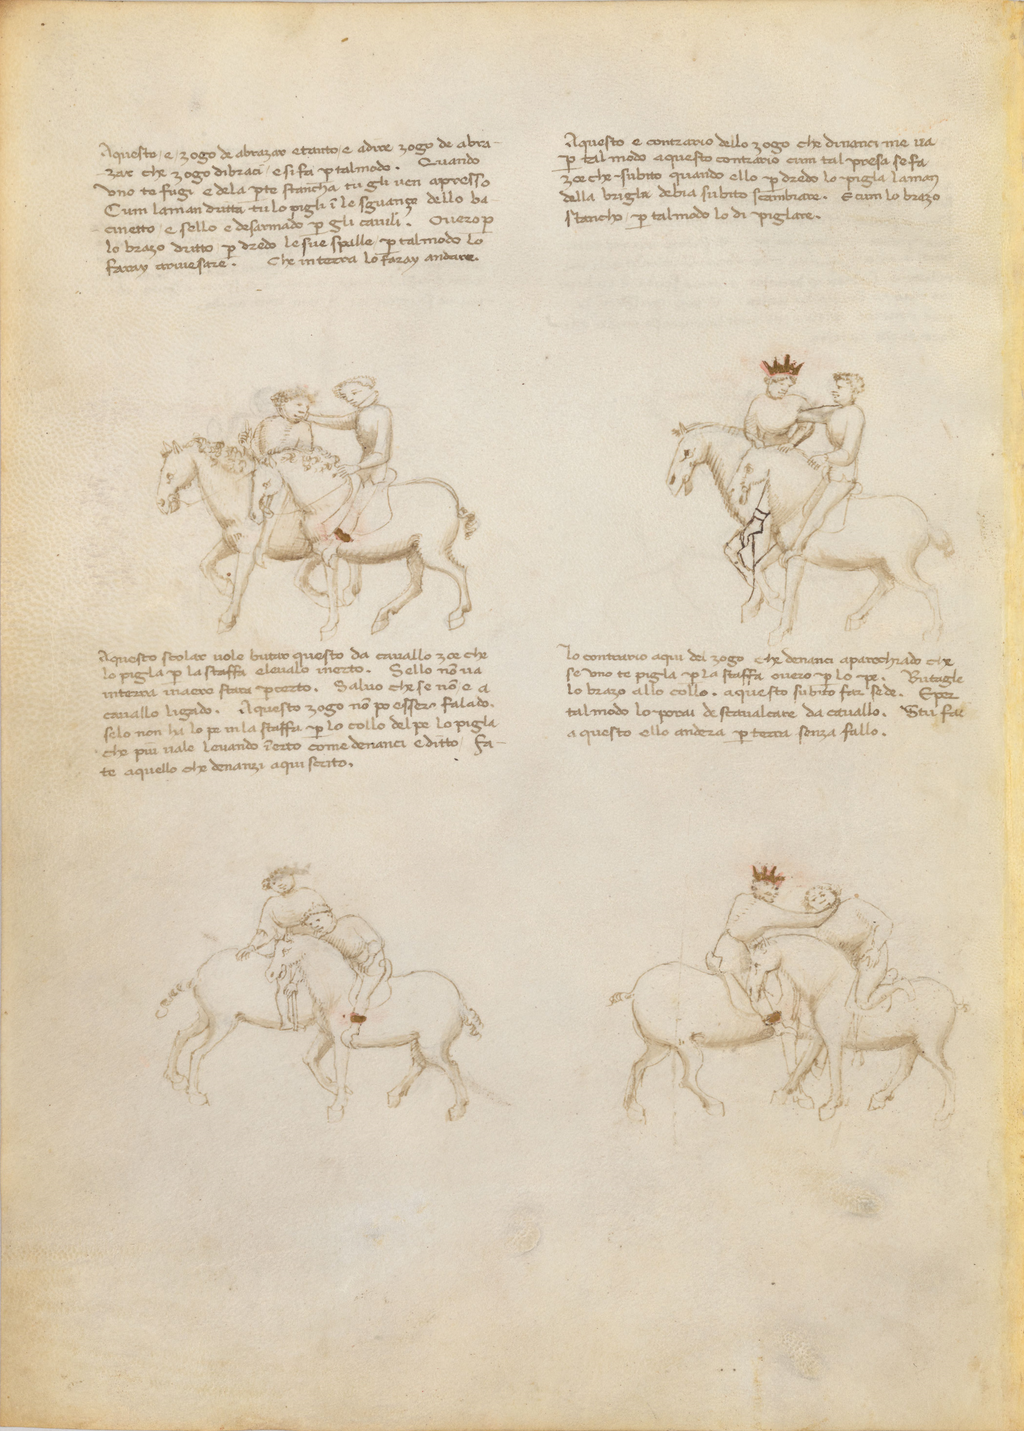 Aquesto, e, zogo de abrazar e tanto, e, adire zogo de abra-
zar che zogo di braci, e si fa p tal modo. Quando
uno te fugi e de la pte stancha tu gli ven apresso
Cum la man dritta tu lo pigli i le sguanze dello ba-
cinetto, e sello e desarmado p gli cavili. Overo p
lo brazo dritto p dredo le sue spalle, p tal modo lo
faray riversare. Che in terra lo faray andare.
Aquesto e contrario dello zogo che dinanci me va
p tal modo aquesto contrario cum tal presa se fa
zoe che subito quando ello p dredo lo pigla la man
della brigla debia subito scambiare. E cum lo brazo
stancho, p tal modo lo di piglare.
Aquesto scolar vole butar questo da cavallo zoe che
lo pigla p la staffa e levalo in erto. Sello no va
in terra in aero stara p certo. Salvo che se no e a
cavallo ligado. Aquesto zogo no po esser falado.
selo non ha lo pe in la staffa p lo collo del pe lo pigla
che piu vale levando i erto come denanci e ditto, Fa-
te aquello che denanzi aqui scrito.
Lo contrario aqui del zogo che denanci aparechiado che
se uno te pigla p la staffa overo p lo pe. Butagle
lo brazo allo collo. aquesto subito far se de. E per
tal modo lo porai descavalcare da cavallo. Stu fae
a questo ello andera p terra senza fallo.